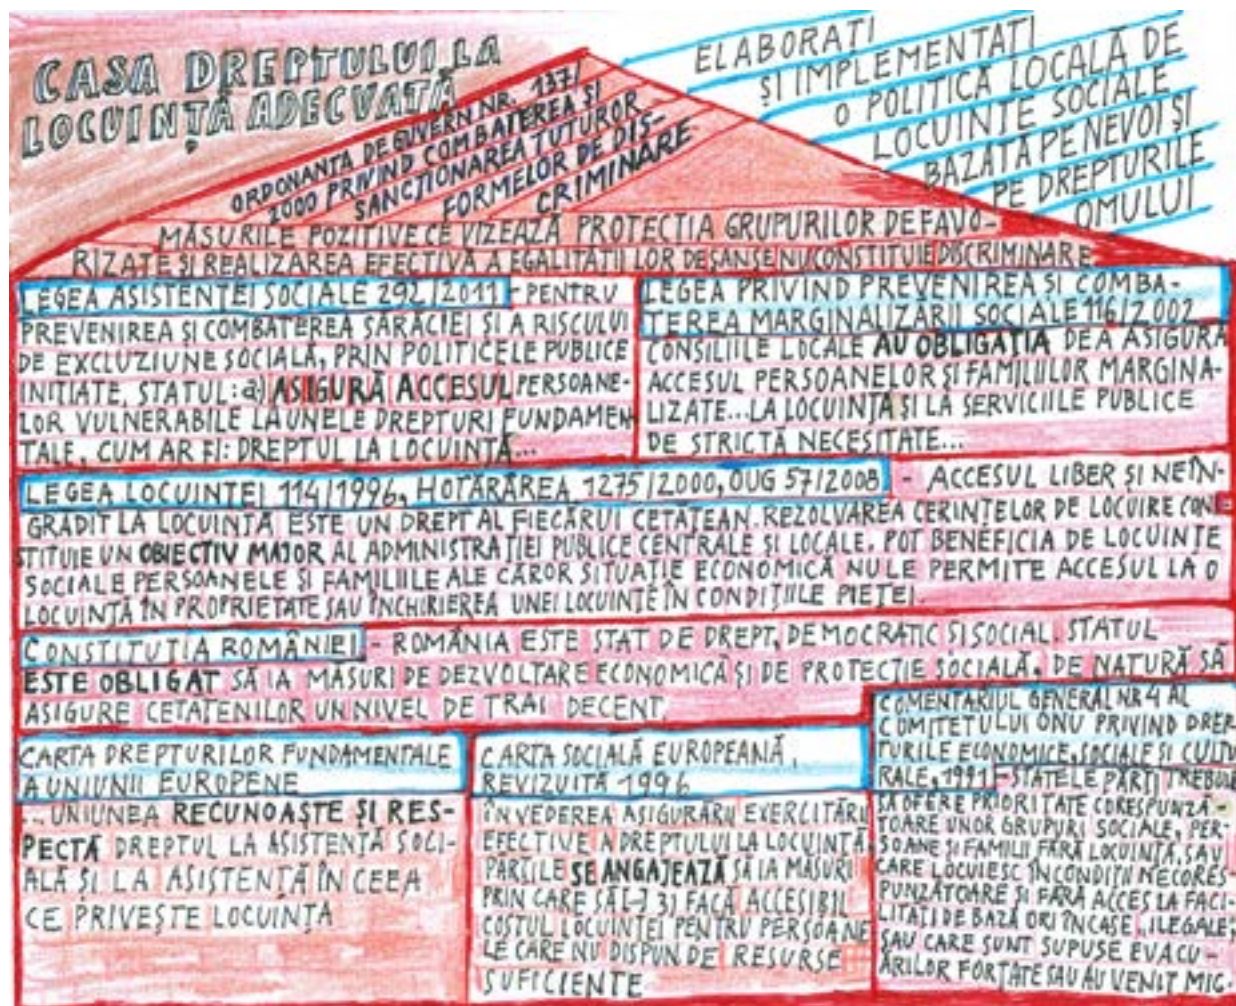 CASA DREPTULUI LA
LOCUINȚĂ ADECVATĂ
ORDONANȚA DE GUVERN NR. 137/
2000 PRIVIND COMBATEREA ȘI
SANCȚIONAREA TUTUROR
FORMELOR DE DIS-
CRIMINARE
ELABORAȚI
ȘI IMPLEMENTAȚI
O POLITICĂ LOCALĂ DE
LOCUINȚE SOCIALE
BAZATĂ PE NEVOI ȘI
PE DREPTURILE
OMULUI
MĂSURILE POZITIVE CE VIZEAZĂ PROTECȚIA GRUPURILOR DEFAVO-
RIZATE ȘI REALIZAREA EFECTIVĂ A EGALITĂȚII LOR DE ȘANSE NU CONSTITUIE DISCRIMINARE
LEGEA ASISTENȚEI SOCIALE 292/2011 - PENTRU
PREVENIREA ȘI COMBATEREA SĂRĂCIEI ȘI A RISCULUI
DE EXCLUZIUNE SOCIALĂ, PRIN POLITICELE PUBLICE
INIȚIATE, STATUL: a) ASIGURĂ ACCESUL PERSOANE-
LOR VULNERABILE LA UNELE DREPTURI FUNDAMEN
TALE, CUM AR FI: DREPTUL LA LOCUINȚĂ...
LEGEA PRIVIND PREVENIREA ȘI COMBA-
TEREA MARGINALIZĂRII SOCIALE 116/2002
CONSILIILE LOCALE AU OBLIGAȚIA DE A ASIGURA
ACCESUL PERSOANELOR ȘI FAMILIILOR MARGINA-
LIZATE... LA LOCUINȚĂ ȘI LA SERVICIILE PUBLICE
DE STRICTĂ NECESITATE...
LEGEA LOCUINȚEI 114/1996, HOTĂRÂREA 1275/2000, OUG 57/2008 - ACCESUL LIBER ȘI NEÎN-
GRĂDIT LA LOCUINȚĂ ESTE UN DREPT AL FIECĂRUI CETĂȚEAN. REZOLVAREA CERINȚELOR DE LOCUIRE CON
STITUIE UN OBIECTIV MAJOR AL ADMINISTRAȚIEI PUBLICE CENTRALE ȘI LOCALE. POT BENEFICIA DE LOCUINȚE
SOCIALE PERSOANELE ȘI FAMILIILE ALE CĂROR SITUAȚIE ECONOMICĂ NU LE PERMITE ACCESUL LA O
LOCUINȚĂ ÎN PROPRIETATE SAU ÎNCHIRIEREA UNEI LOCUINȚE ÎN CONDIȚIILE PIEȚEI.
CONSTITUȚIA ROMÂNIEI - ROMÂNIA ESTE STAT DE DREPT, DEMOCRATIC ȘI SOCIAL. STATUL
ESTE OBLIGAT SĂ IA MĂSURI DE DEZVOLTARE ECONOMICĂ ȘI DE PROTECȚIE SOCIALĂ, DE NATURĂ SĂ
ASIGURE CETĂȚENILOR UN NIVEL DE TRAI DECENT.
CARTA DREPTURILOR FUNDAMENTALE
A UNIUNII EUROPENE
...UNIUNEA RECUNOAȘTE ȘI RES-
PECTĂ DREPTUL LA ASISTENȚĂ SOCI-
ALĂ ȘI LA ASISTENȚĂ ÎN CEEA
CE PRIVEȘTE LOCUINȚA
CARTA SOCIALĂ EUROPEANĂ,
REVIZUITĂ 1996
ÎN VEDEREA ASIGURĂRII EXERCITĂRII
EFECTIVE A DREPTULUI LA LOCUINȚĂ,
PĂRȚILE SE ANGAJEAZĂ SĂ IA MĂSURI
PRIN CARE SĂ(...) 3) FACĂ ACCESIBIL
COSTUL LOCUINȚEI PENTRU PERSOANE
LE CARE NU DISPUN DE RESURSE
SUFICIENTE
COMENTARIUL GENERAL NR 4 AL
COMITETULUI ONU PRIVIND DREP
TURILE ECONOMICE, SOCIALE ȘI CULTU
RALE, 1991 - STATELE PĂRȚI TREBUIE
SĂ OFERE PRIORITATE CORESPUNZĂ-
TOARE UNOR GRUPURI SOCIALE, PER-
SOANE ȘI FAMILII FĂRĂ LOCUINȚĂ, SAU
CARE LOCUIESC ÎN CONDIȚII NECORES
PUNZĂTOARE ȘI FĂRĂ ACCES LA FACI-
LITĂȚI DE BAZĂ ORI ÎN CASE „ILEGALE”,
SAU CARE SUNT SUPUSE EVACU-
ĂRILOR FORȚATE SAU AU VENIT MIC.